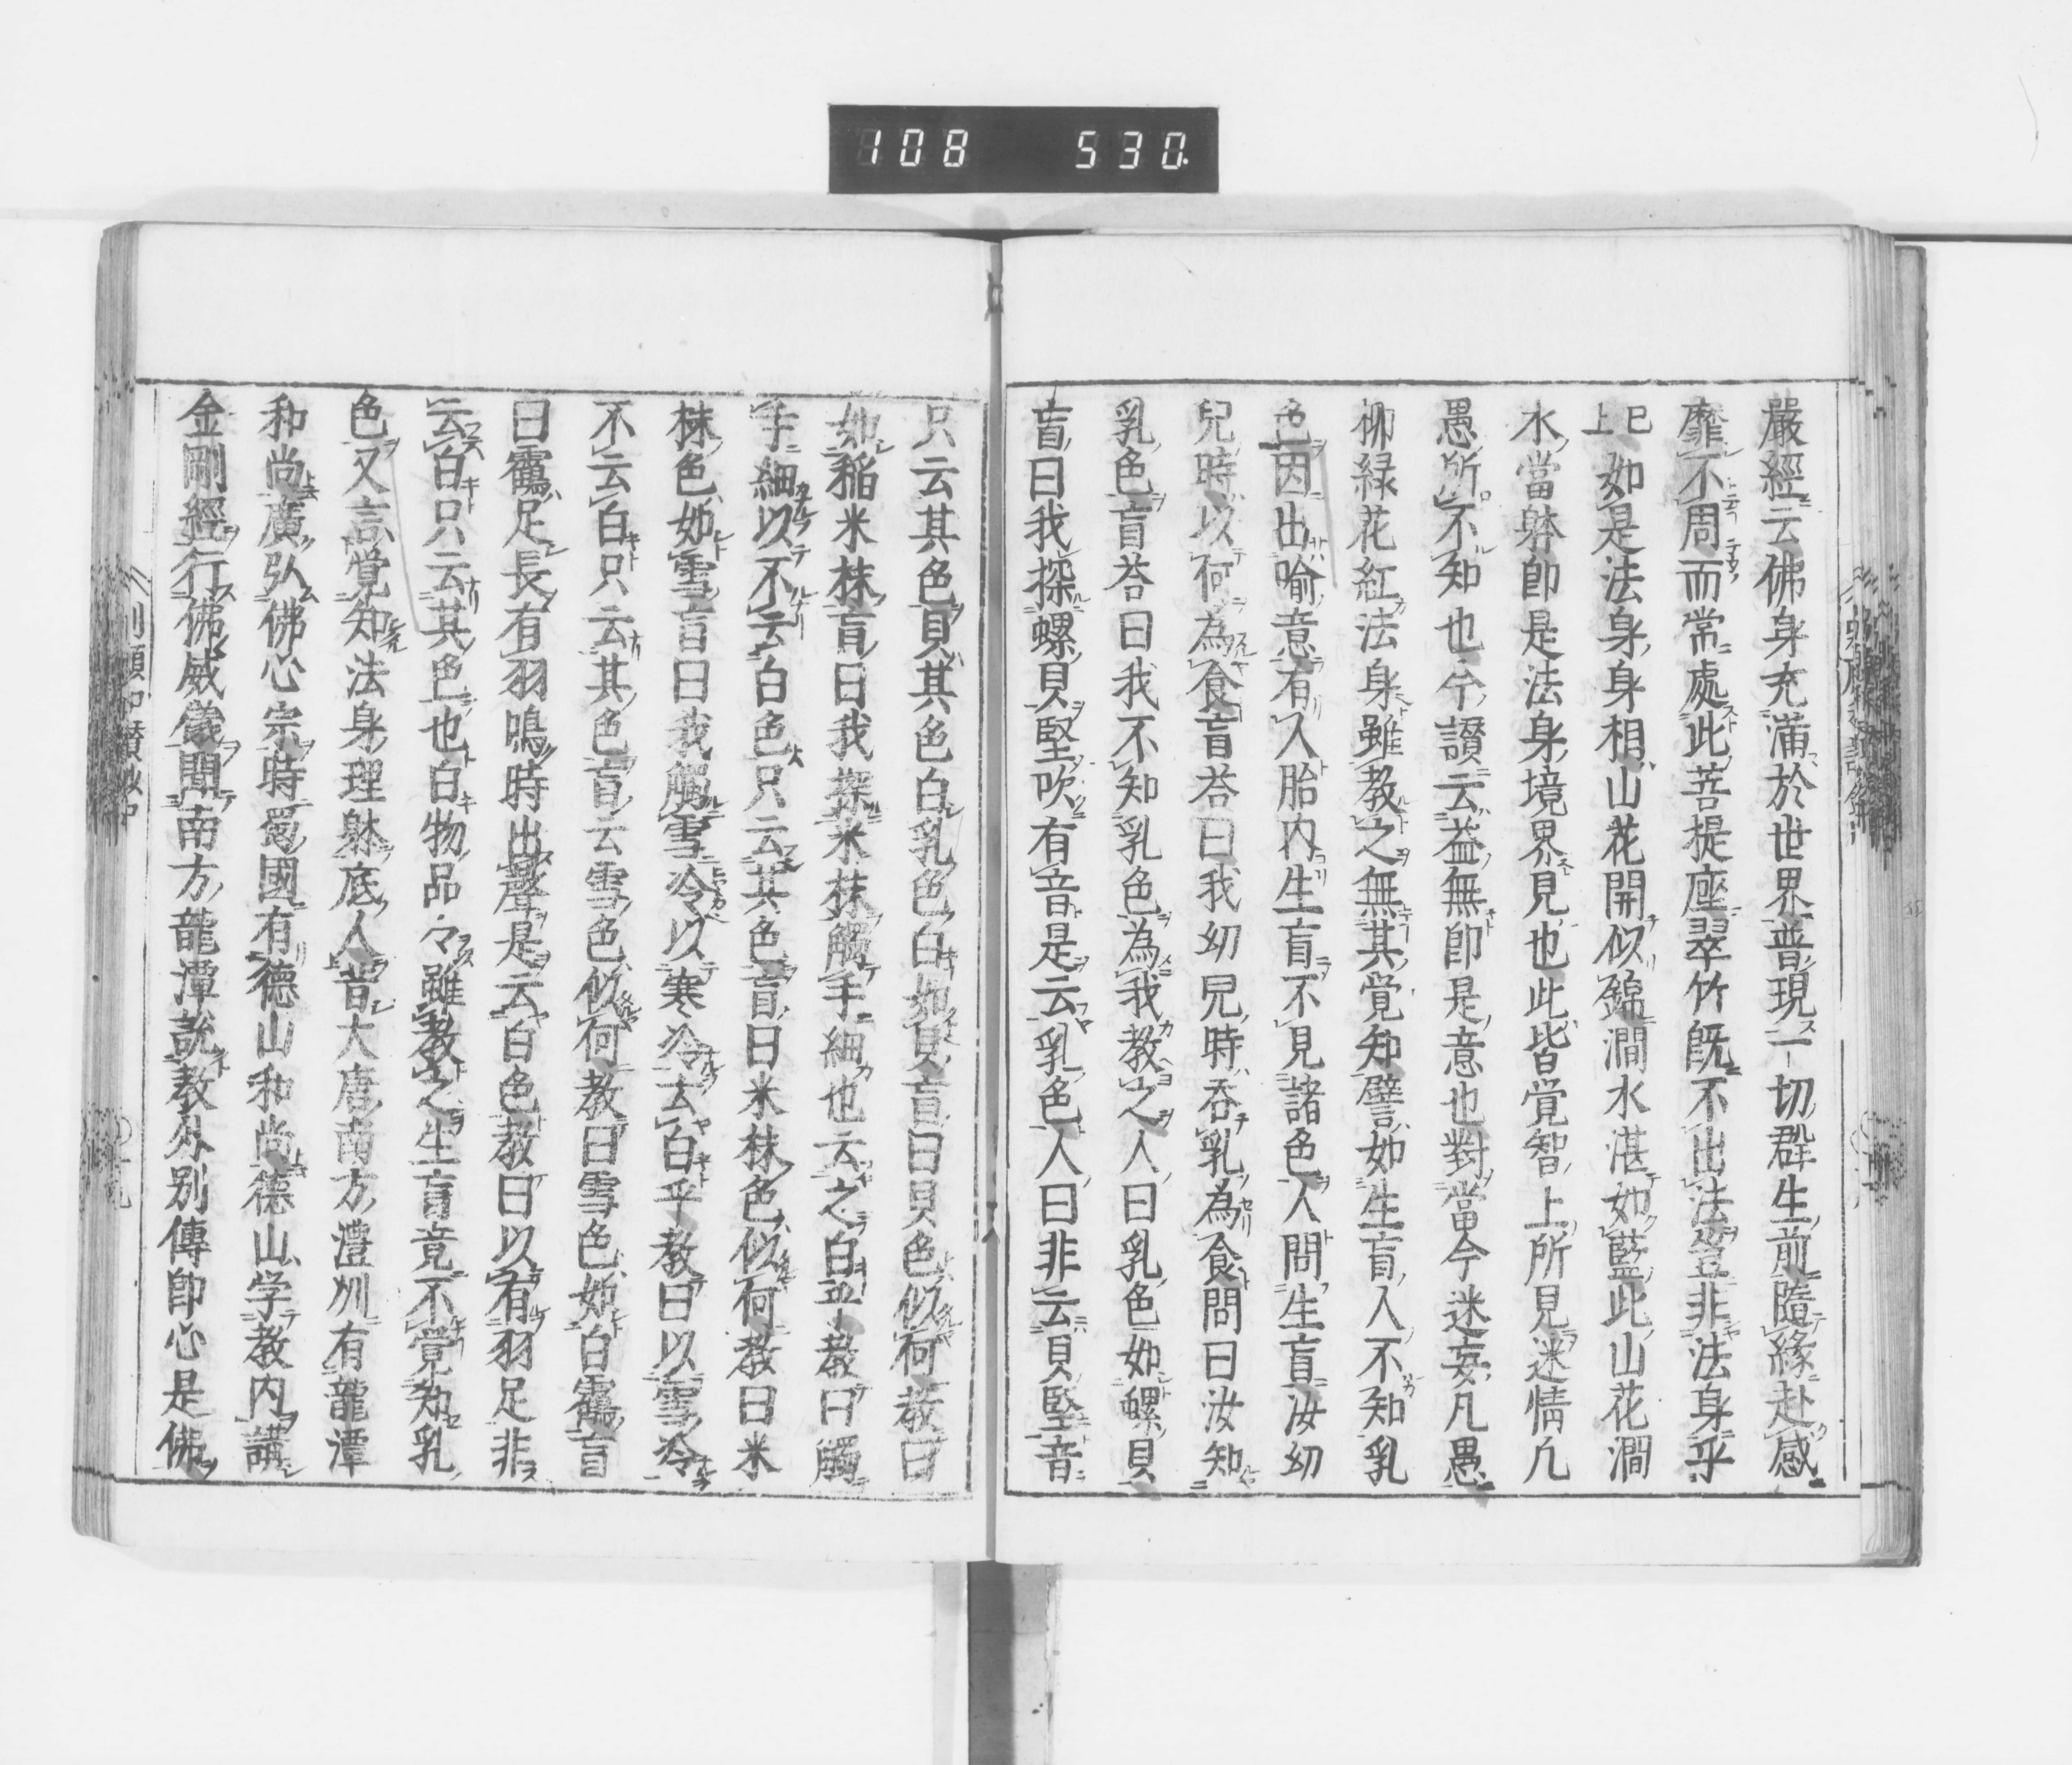 108 530
嚴經云佛身充滿於世界普現一切群生前隨緣赴感
靡不周而常處此菩提座翠竹既不出法豈非法身乎
已上如是法身身相山花開似錦澗水湛如藍此山花澗
水當躰即是法身境界見也此皆覚智上所見迷情凢
愚所不知也今讃云益無即是意也對當今迷妄凡愚
柳緑花紅法身雖教之無其覚知譬如生盲人不知乳
色因出喻意有人胎内生盲不見諸色人問生盲汝幼
兒時以何為食盲荅曰我幼兒時呑乳為食問曰汝知
乳色盲荅曰我不知乳色為我教之人曰乳色如螺貝
盲曰我探螺貝堅吹有音是云乳色人曰非云貝堅音
只云其色貝其色白乳色白如貝盲曰貝色似何教曰
如稲米抹盲曰我探米抹觸手細也云之白乎教曰觸
手細以不云白色只云其色盲曰米抹色似何教曰米
抹色如雪盲曰我觸雪冷以寒冷云白乎教曰以雪冷
不云白只云其色盲云雪色似何教曰雪色如白鶴盲
曰鶴足長有羽鳴時出聲是云白色教曰以有羽足非
云白只云其色也白物品々雖教之生盲竟不覚知乳
色又言覚知法身理躰底人昔大唐南方澧州有龍潭
和尚廣弘佛心宗時蜀國有德山和尚德山学教内講
金剛經行佛威儀聞南方龍潭説教外別傳即心是佛